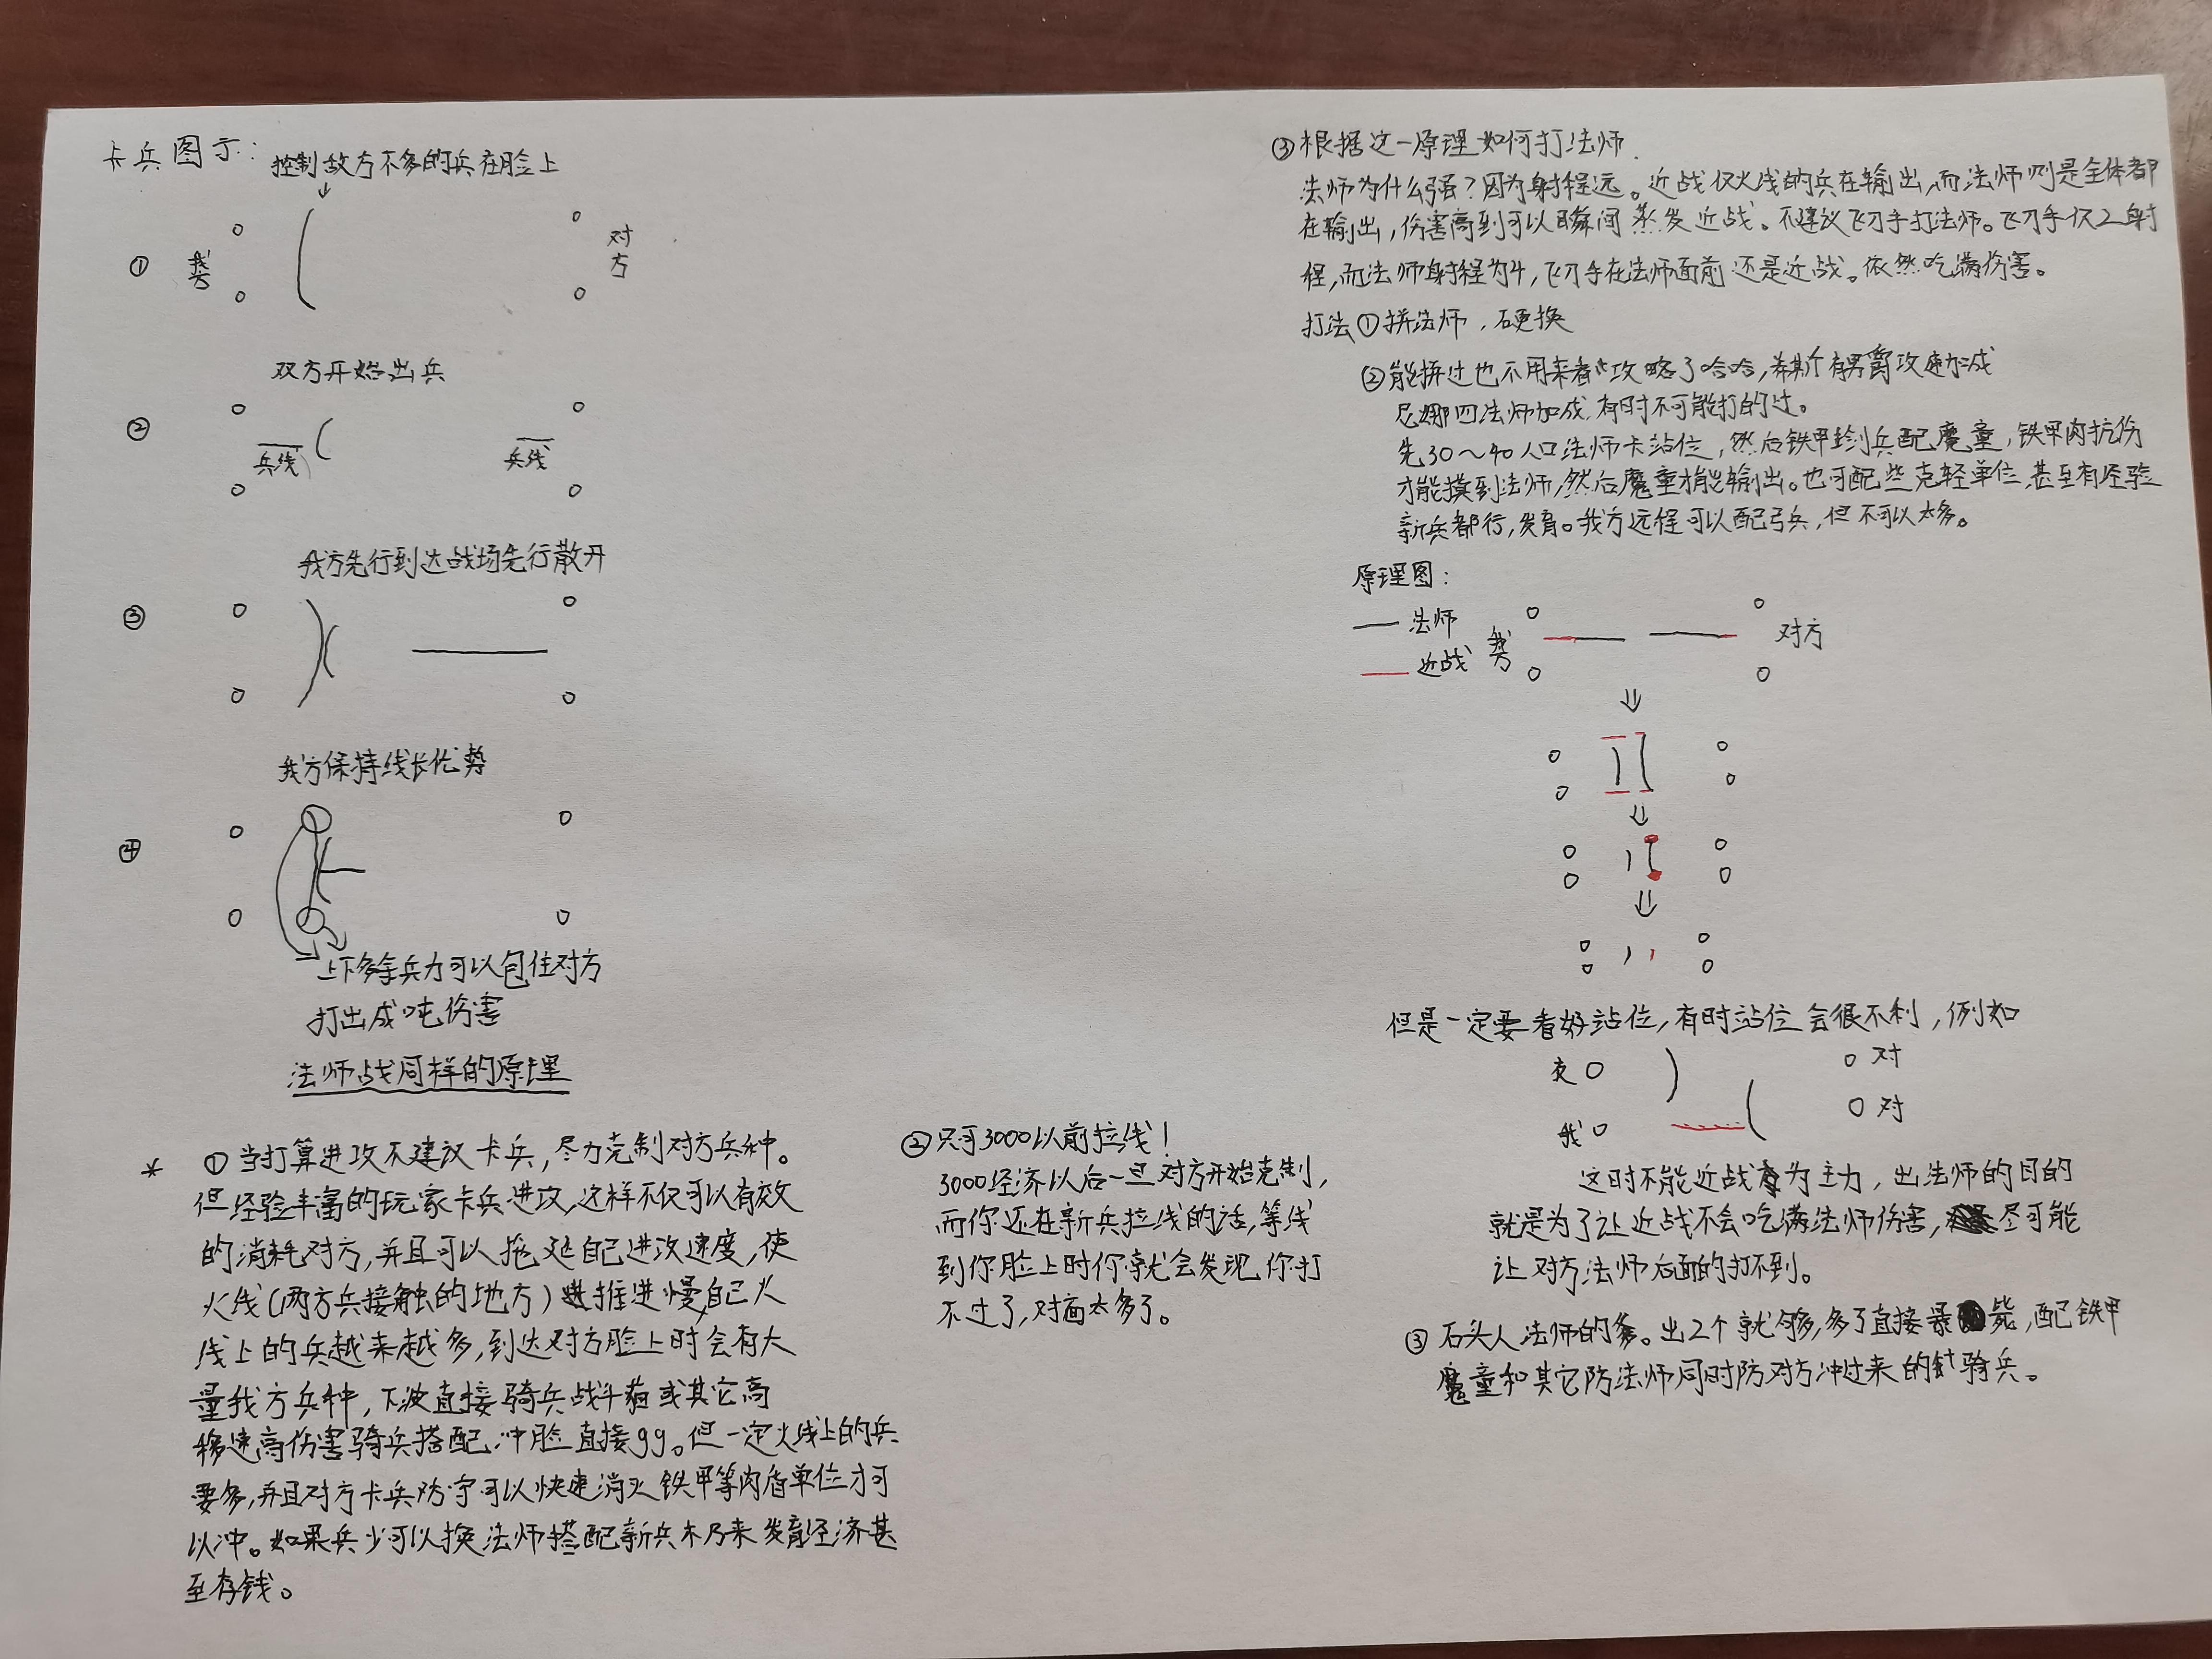 卡兵图示:
控制敌方不多的兵在脸上
①
我方
对方
双方开始出兵
②
兵线
兵线
我方先行到达战场先行散开
③
我方保持线长优势
④
上下多余兵力可以包住对方
打出成吨伤害
法师战同样的原理
* ①当打算进攻不建议卡兵,尽力克制对方兵种。
但经验丰富的玩家卡兵进攻,这样不仅可以有效
的消耗对方,并且可以拖延自己进攻速度,使
火线(两方兵接触的地方)推进慢,自己火
线上的兵越来越多,到达对方脸上时会有大
量我方兵种,下波直接骑兵战斗猫或其它高
移速高伤害骑兵搭配,冲脸直接gg。但一定火线上的兵
要多,并且对方卡兵防守可以快速消灭铁甲等肉盾单位才可
以冲。如果兵少可以换法师搭配新兵木乃来发育经济甚
至存钱。
②只可3000以前拉线!
3000经济以后一旦对方开始克制,
而你还在新兵拉线的话,等线
到你脸上时你就会发现你打
不过了,对面太多了。
③根据这一原理如何打法师.
法师为什么强?因为射程远。近战仅火线的兵在输出,而法师则是全体都
在输出,伤害高到可以瞬间蒸发近战。不建议飞刀手打法师。飞刀手仅2射
程,而法师射程为4,飞刀手在法师面前还是近战。依然吃满伤害。
打法①拼法师,硬换
②能拼过也不用来看攻略了哈哈,有男爵攻速加成
尼娜四法师加成,有时不可能打的过。
先30~40人口法师卡站位,然后铁甲剑兵配魔童,铁甲肉抗伤
才能摸到法师,然后魔童才能输出。也可配些克轻单位,甚至有经验
新兵都行,发育。我方远程可以配弓兵,但不可以太多。
原理图:
法师
近战
我方
对方
但是一定要看好站位,有时站位会很不利,例如
友
对
我
对
这时不能近战为主力,出法师的目的
就是为了让近战不会吃满法师伤害,尽可能
让对方法师后面的打不到。
③石头人法师的爹。出2个就够,多了直接暴毙,配铁甲
魔童和其它防法师同时防对方冲过来的骑兵。